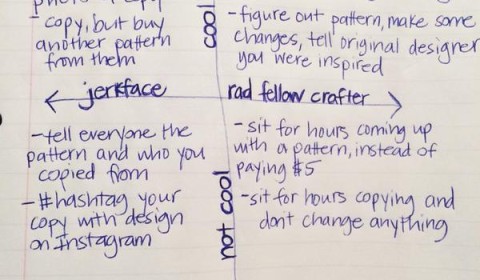 photo
- copy, but buy
another pattern
from them
cool
- figure out pattern, make some
changes, tell original designer
you were inspired
jerkface
rad fellow crafter
- tell everyone the
pattern and who you
copied from
- #hashtag your
copy with design
on Instagram
not cool
- sit for hours coming up
with a pattern, instead of
paying $5
- sit for hours copying and
don't change anything